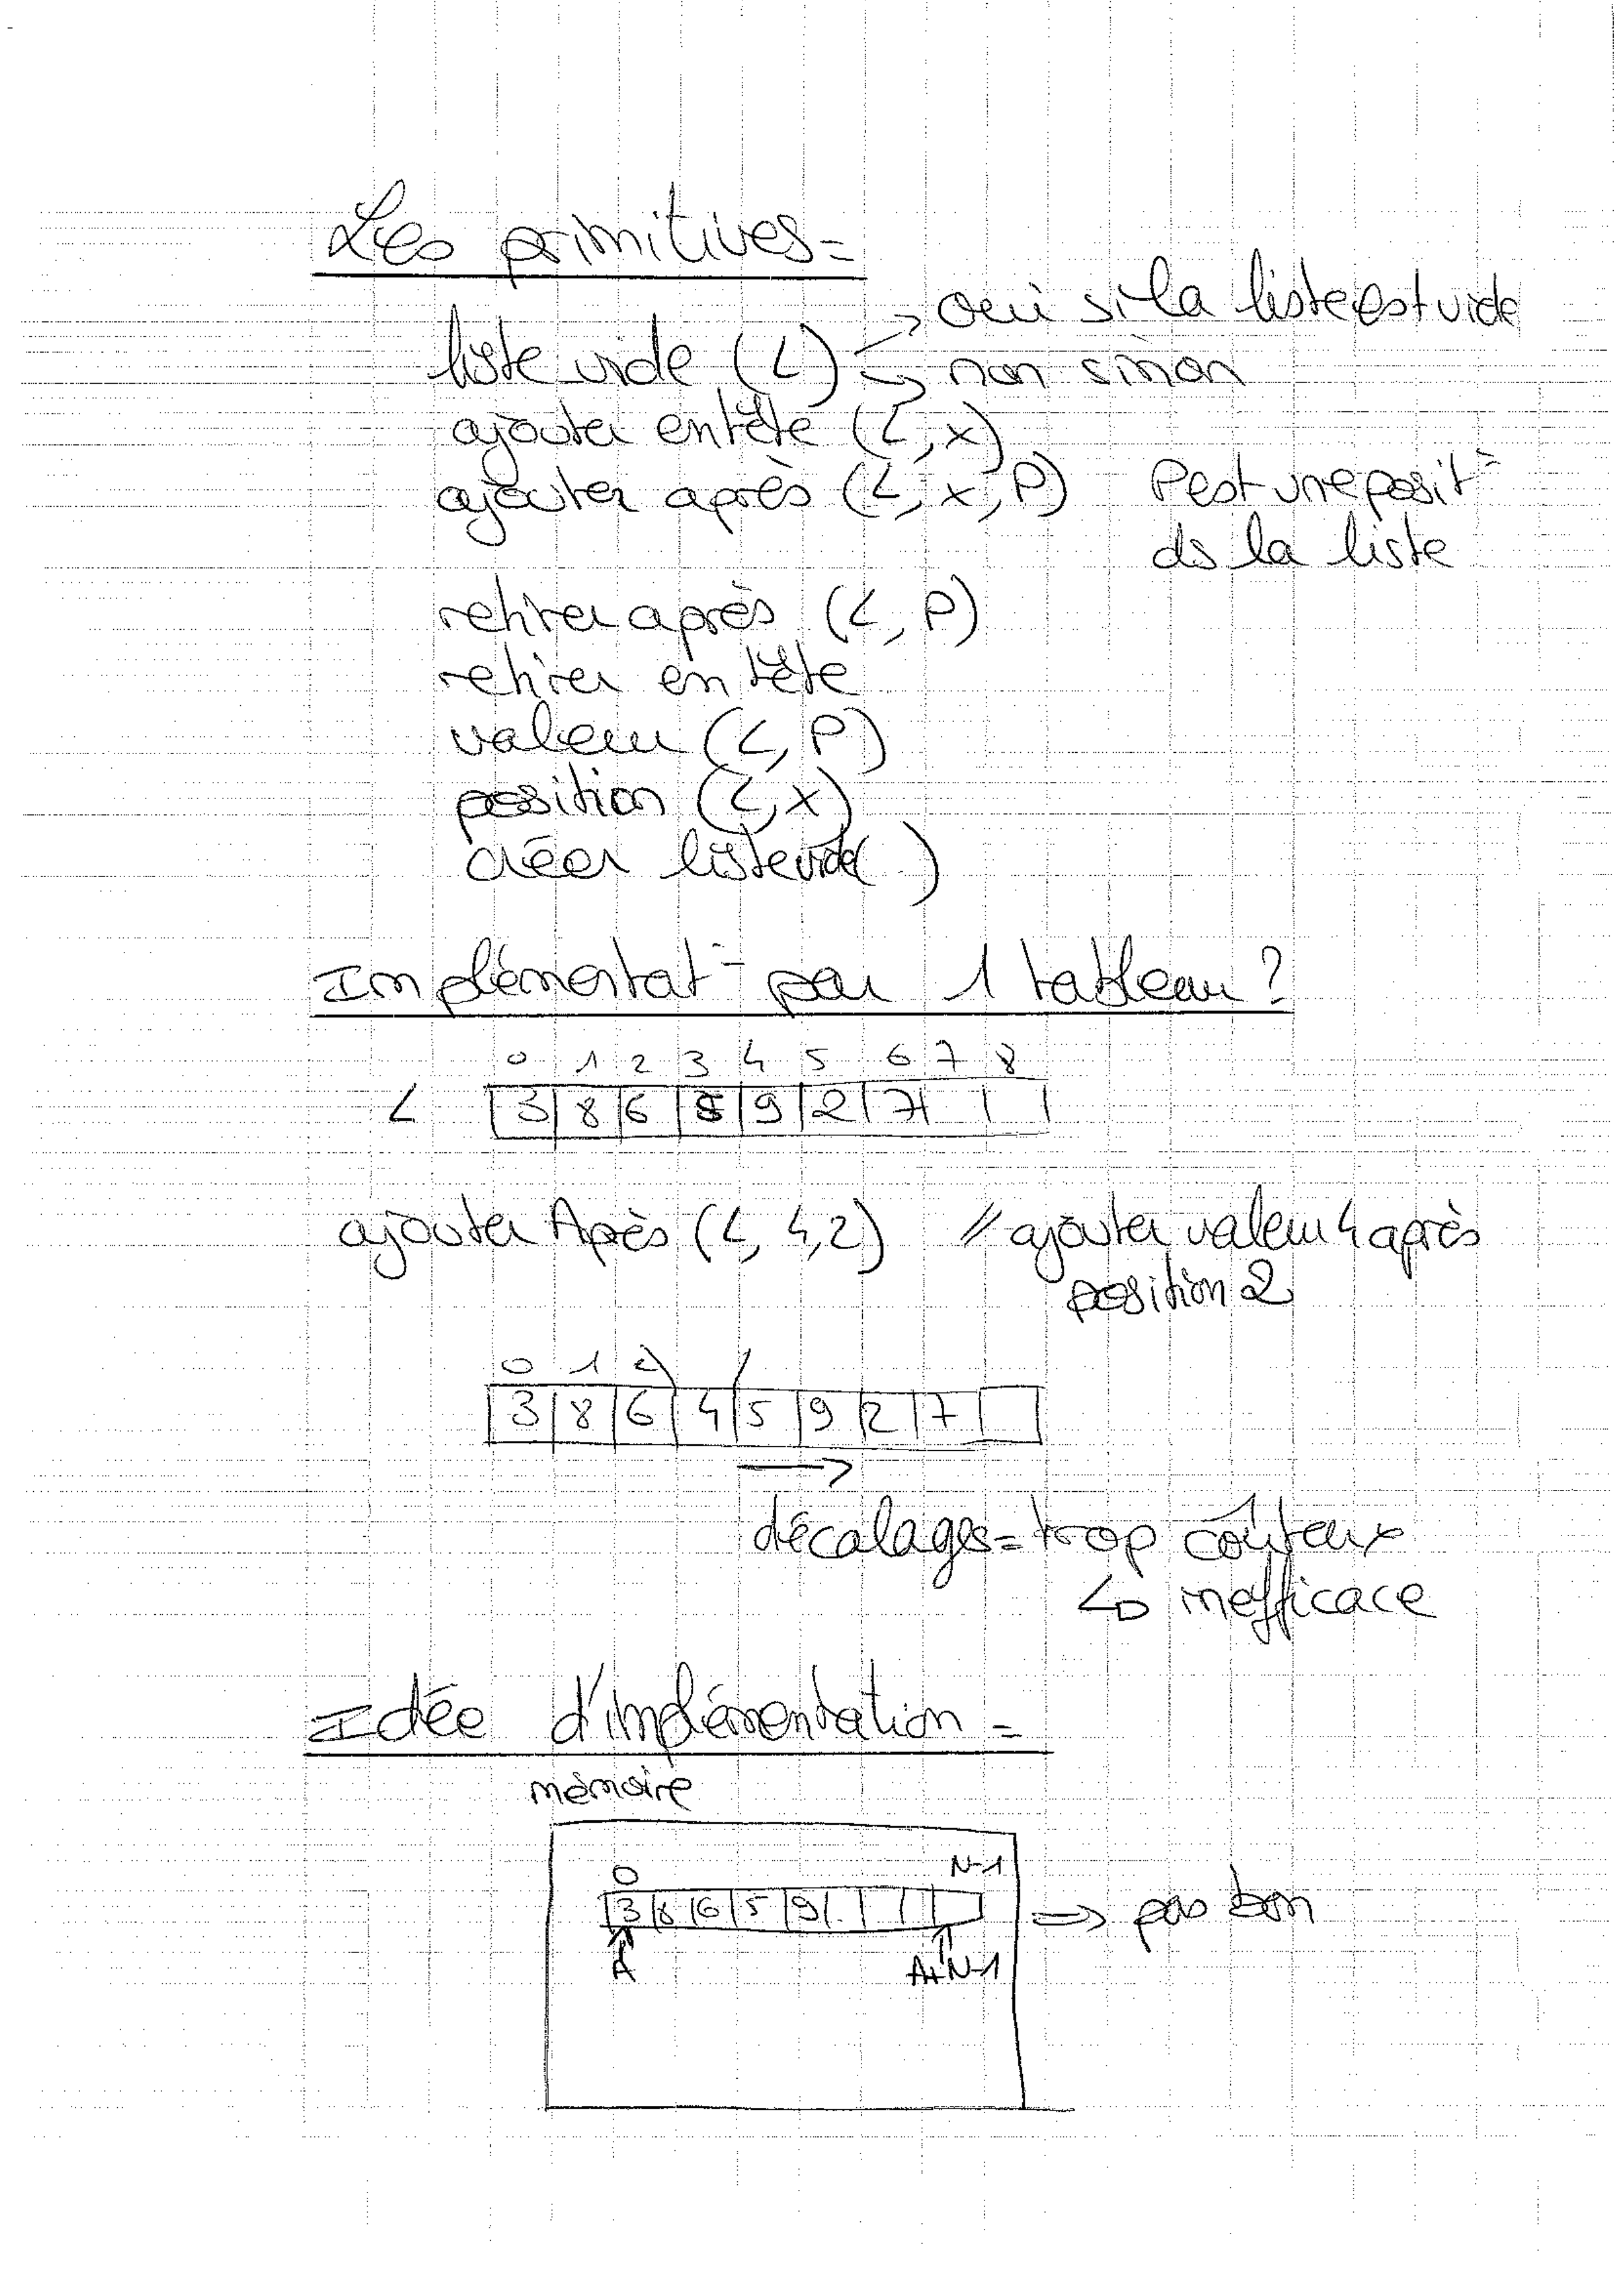 Les primitives =
liste vide (L) → oui si la liste est vide
→ non sinon
ajouter en tête (L, x)
ajouter après (L, x, P) P est une posit°
ds la liste
retirer après (L, P)
retirer en tête
valeur (L, P)
position (L, x)
créer liste vide ( )
Implémentat° par 1 tableau ?
0 1 2 3 4 5 6 7 8
L 3 8 6 5 9 2 7
ajouter Après (L, 4, 2) // ajouter valeur 4 après
position 2
0 1 2
3 8 6 4 5 9 2 7
→
décalages = trop coûteux
↳ inefficace
Idée d'implémentation =
mémoire
0 N-1
3 8 6 5 9 ⇒ pas bon
A A+N-1